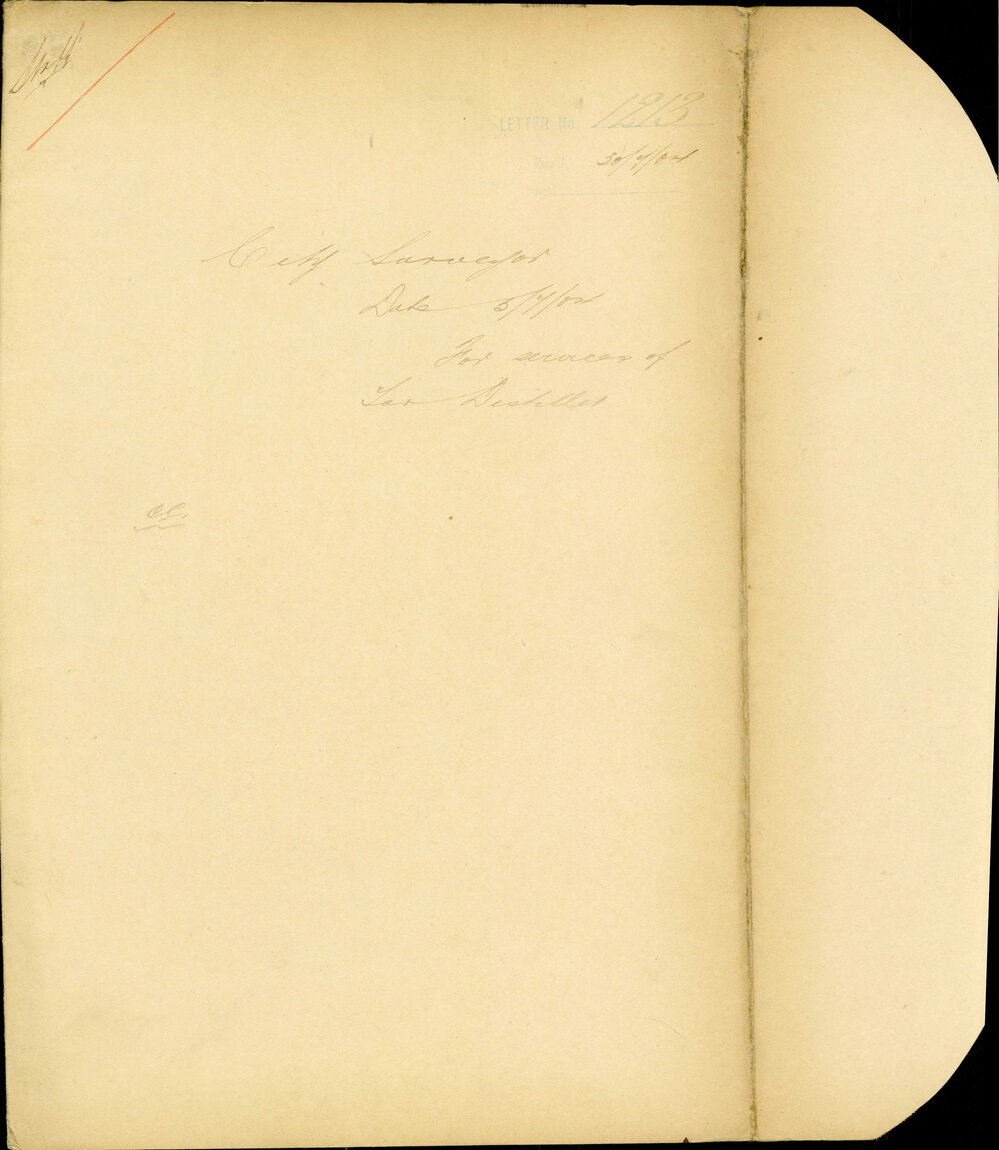 Staff
LETTER No. 1213
Rec'd 30/4/04
Ans'd
City Surveyor
Date 5/4/04
For services of
Tar Distiller
CC.